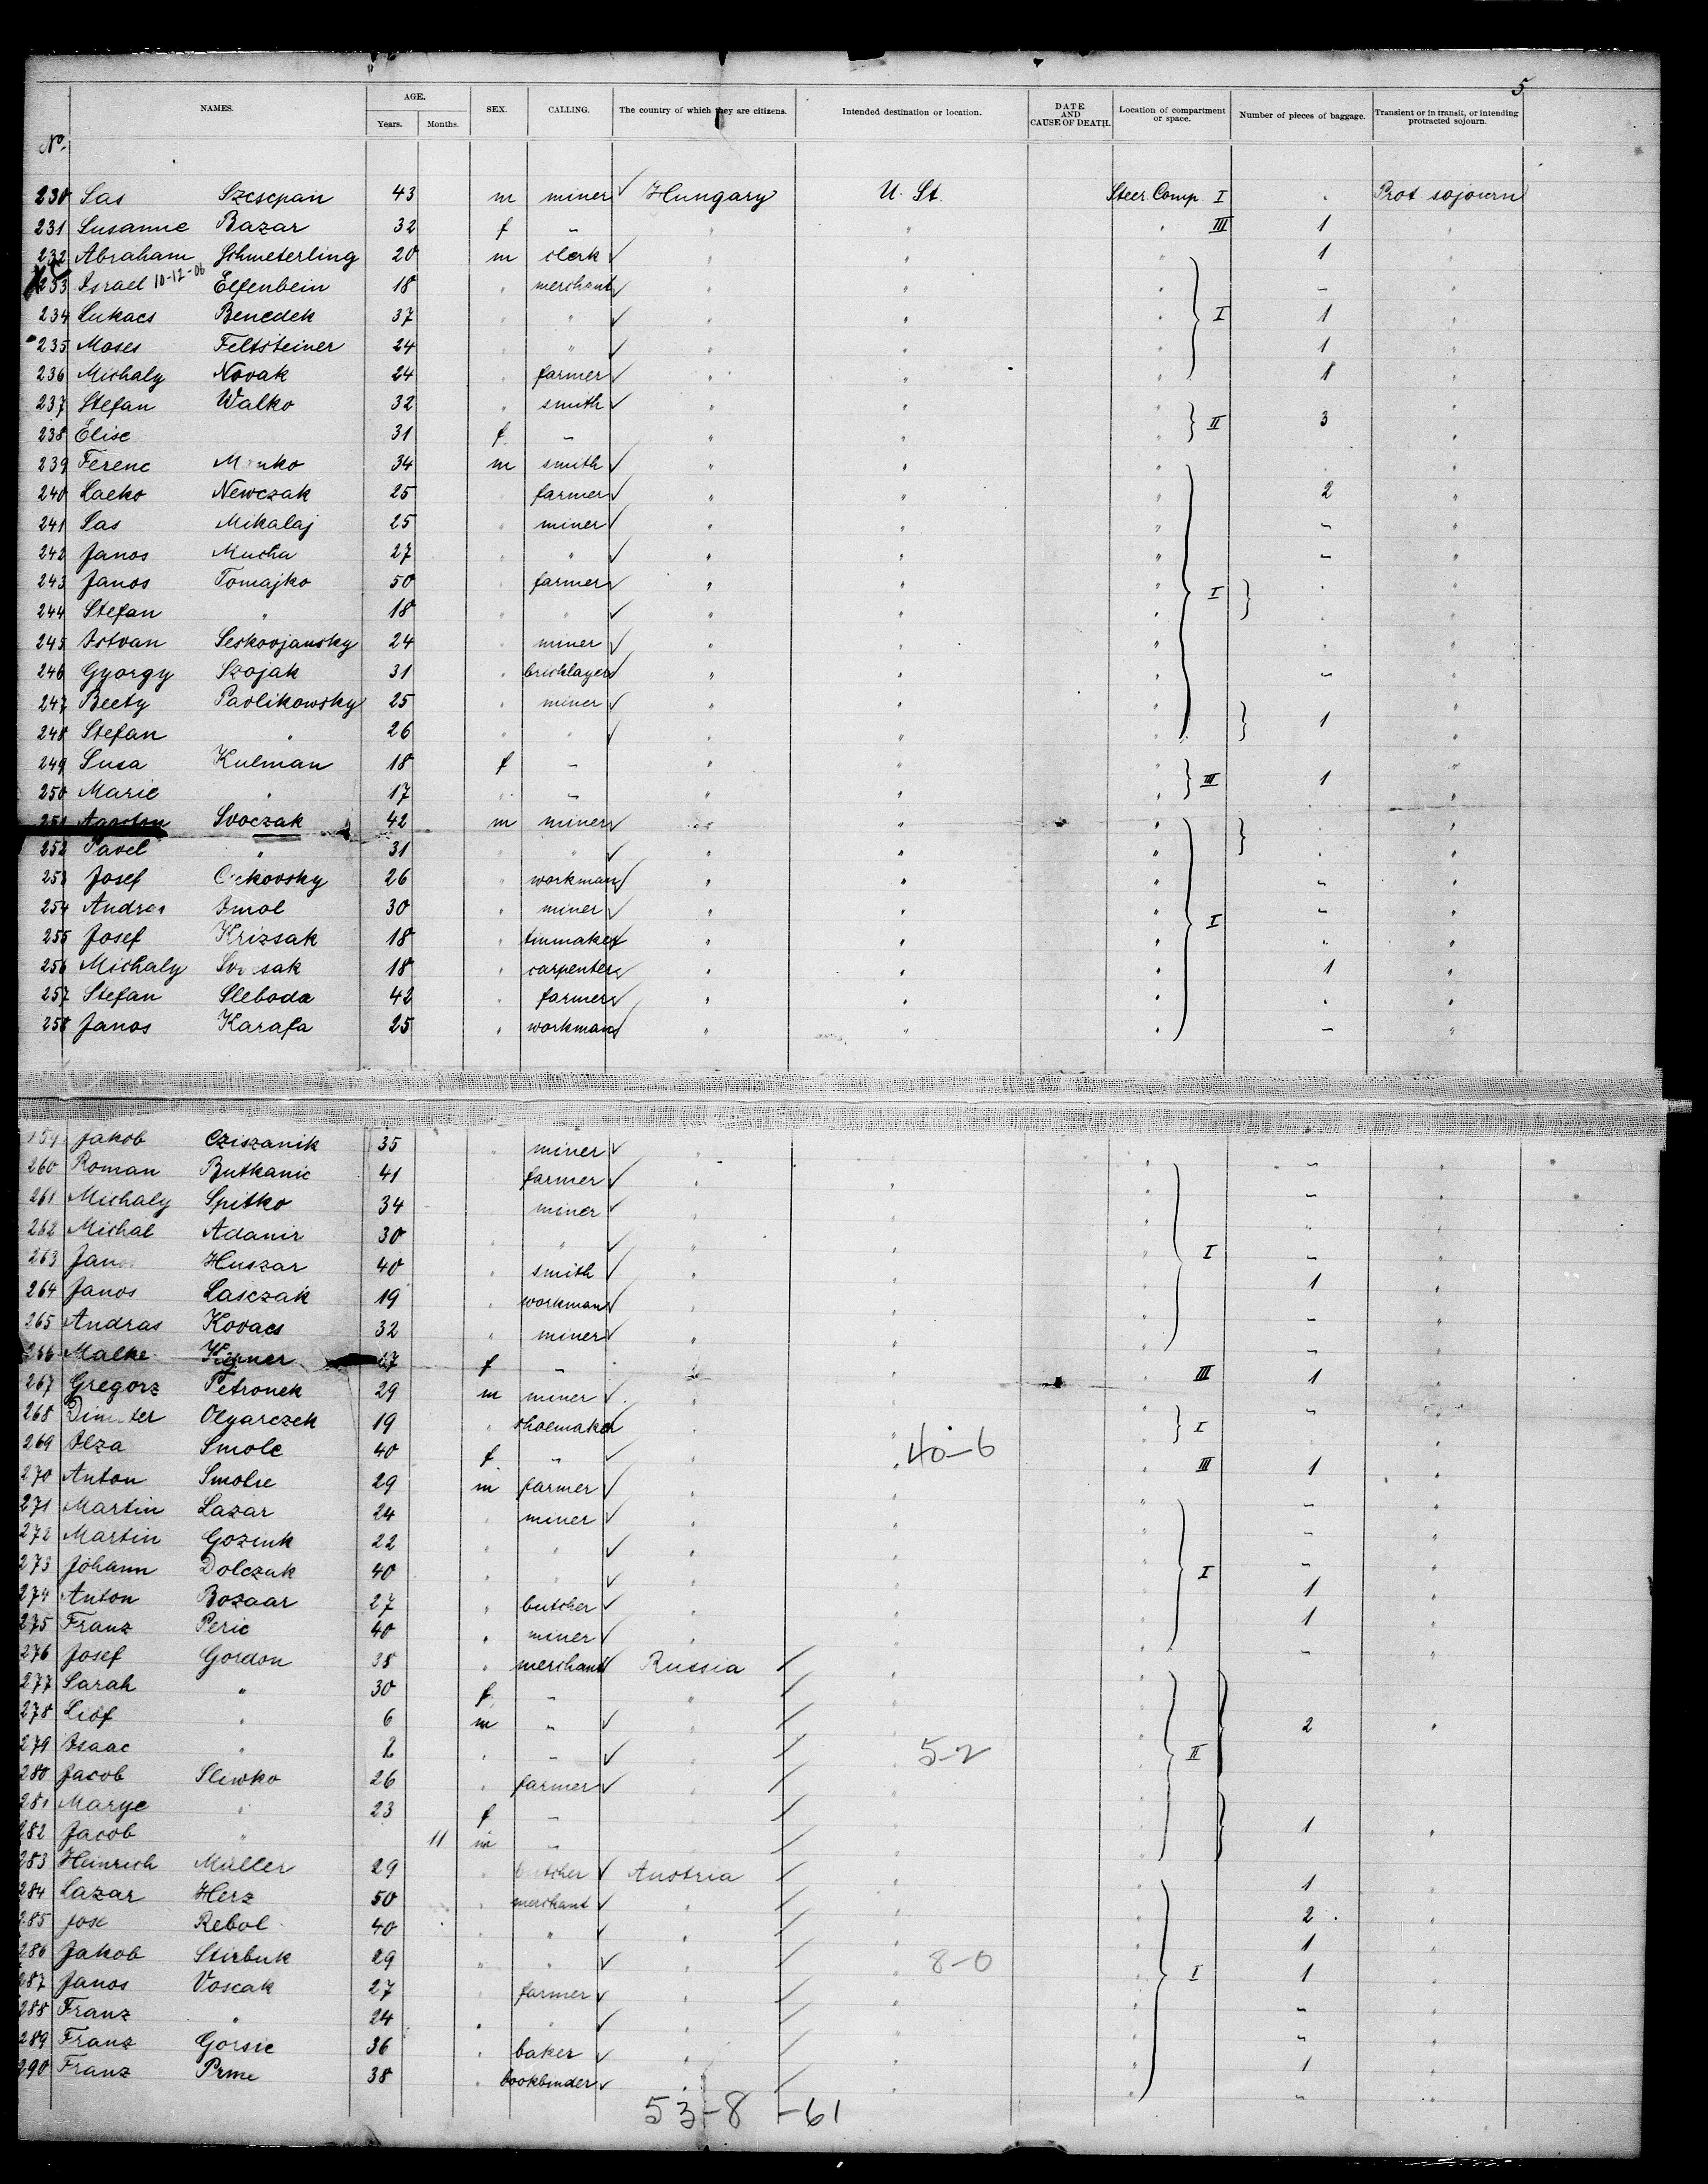 5
NAMES. AGE. SEX. CALLING. The country of which they are citizens. Intended destination or location. DATE AND CAUSE OF DEATH. Location of compartment or space. Number of pieces of baggage. Transient or in transit, or intending protracted sojourn.
Years. Months.
No.
230 Sas Szcsepan 43 m miner ✓ Hungary U. St. Steer. Comp. I Prot sojourn
231 Susanne Bazar 32 f " " " III 1 "
232 Abraham Schmeterling 20 m clerk ✓ " " " 1 "
233 Israel 10-12-06 Elfenbein 18 " merchant ✓ " " " - "
234 Lukacs Benedek 37 " " ✓ " " " I 1 "
235 Moses Feltsteiner 24 " " ✓ " " " 1 "
236 Michaly Novak 24 " farmer ✓ " " " 1 "
237 Stefan Walko 32 " smith ✓ " " " II 3 "
238 Elise 31 f " " " " "
239 Ferenc 34 m smith ✓ " " " "
240 Lacko Newczak 25 farmer ✓ " " " 2 "
241 Sas Mikalaj 25 " miner ✓ " " " - "
242 Janos Mucha 27 " " ✓ " " " - "
243 Janos Tomajko 50 " farmer ✓ " " " I "
244 Stefan " 18 " " ✓ " " " "
245 Istvan Seskovjansky 24 " miner ✓ " " " "
246 Gyorgy Szojak 31 " bricklayer ✓ " " " - "
247 Beety Pavlikowsky 25 " miner ✓ " " " 1 "
248 Stefan " 26 " " ✓ " " " "
249 Susa Kulman 18 f - " " " III 1 "
250 Marie " 17 " - " " " "
251 Agoston Svoczak 42 m miner ✓ " " " "
252 Pavel " 31 " " ✓ " " " "
253 Josef 26 " workman ✓ " " " - "
254 Andras Smol 30 " miner ✓ " " " I - "
255 Josef Krizsak 18 " tinmaker ✓ " " " "
256 Michaly 18 " carpenter ✓ " " " 1 "
257 Stefan Sleboda 42 " farmer ✓ " " " "
258 Janos Karafa 25 " workman ✓ " " " - "
Jakob Cziszanik 35 " miner ✓ " " " - "
260 Roman Butkanic 41 farmer ✓ " " " - "
261 Michaly Spitko 34 miner ✓ " " " "
262 Michal Adamir 30 " " ✓ " " " I - "
263 Janos Huszar 40 " smith ✓ " " " 1 "
264 Janos Lasczak 19 " workman ✓ " " " - "
265 Andras Kovacs 32 " miner ✓ " " " - "
266 Malke 17 f - " " " III 1 "
267 Gregorz Petronek 29 m miner ✓ " " " - "
268 Olyarczek 19 " shoemaker ✓ " " " I "
269 Ilza Smole 40 f - ✓ " " 40-6 " III 1 "
270 Anton Smolse 29 m farmer ✓ " " " - "
271 Martin Lazar 24 " miner ✓ " " " - "
272 Martin Gozink 22 " " ✓ " " " - "
273 Johann Dolczak 40 " " ✓ " " " I 1 "
274 Anton Bozaar 27 " butcher ✓ " " " 1 "
275 Franz Peric 40 " miner ✓ " " " - "
276 Josef Gordon 38 " merchant ✓ Russia " "
277 Sarah " 30 f. - " " "
278 Liof " 6 m - ✓ " " " 2 "
279 Isaac " 2 " - ✓ " 5-2 " II
280 Jacob Sliwko 26 " farmer ✓ " " "
281 Marye " 23 f - " " " 1 "
282 Jacob " 11 m - " " "
283 Heinrich Müller 29 " butcher ✓ Austria " " 1 "
284 Lazar Herz 50 " merchant ✓ " " " 2 "
285 Rebol 40 " " ✓ " " " 1 "
286 Jakob Stirbuk 29 " " ✓ " 8-0 " I 1 "
287 Janos Voscak 27 " farmer ✓ " " " - "
288 Franz " 24 " " ✓ " " " - "
289 Franz Gorsic 36 " baker ✓ " " " 1 "
290 Franz Prme 38 " bookbinder ✓ " " " - "
53-8 -61